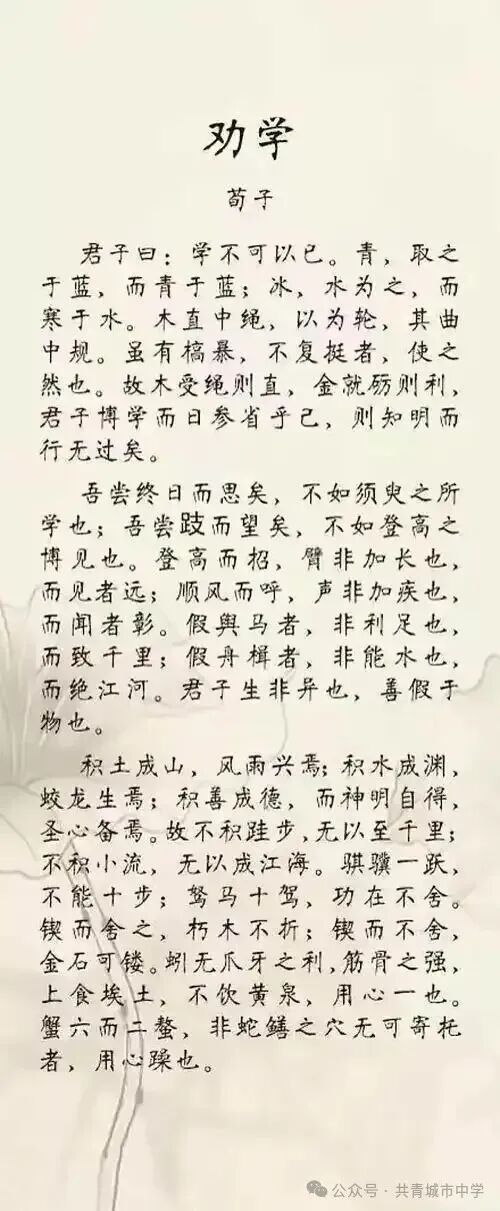 劝学
荀子
君子曰：学不可以已。青，取之
于蓝，而青于蓝；冰，水为之，而
寒于水。木直中绳，以为轮，其曲
中规。虽有槁暴，不复挺者，使之
然也。故木受绳则直，金就砺则利，
君子博学而日参省乎己，则知明而
行无过矣。
吾尝终日而思矣，不如须臾之所
学也；吾尝跂而望矣，不如登高之
博见也。登高而招，臂非加长也，
而见者远；顺风而呼，声非加疾也，
而闻者彰。假舆马者，非利足也，
而致千里；假舟楫者，非能水也，
而绝江河。君子生非异也，善假于
物也。
积土成山，风雨兴焉；积水成渊，
蛟龙生焉；积善成德，而神明自得，
圣心备焉。故不积跬步，无以至千里；
不积小流，无以成江海。骐骥一跃，
不能十步；驽马十驾，功在不舍。
锲而舍之，朽木不折；锲而不舍，
金石可镂。蚓无爪牙之利，筋骨之强，
上食埃土，不饮黄泉，用心一也。
蟹六而二螯，非蛇鳝之穴无可寄托
者，用心躁也。
公众号·共青城市中学